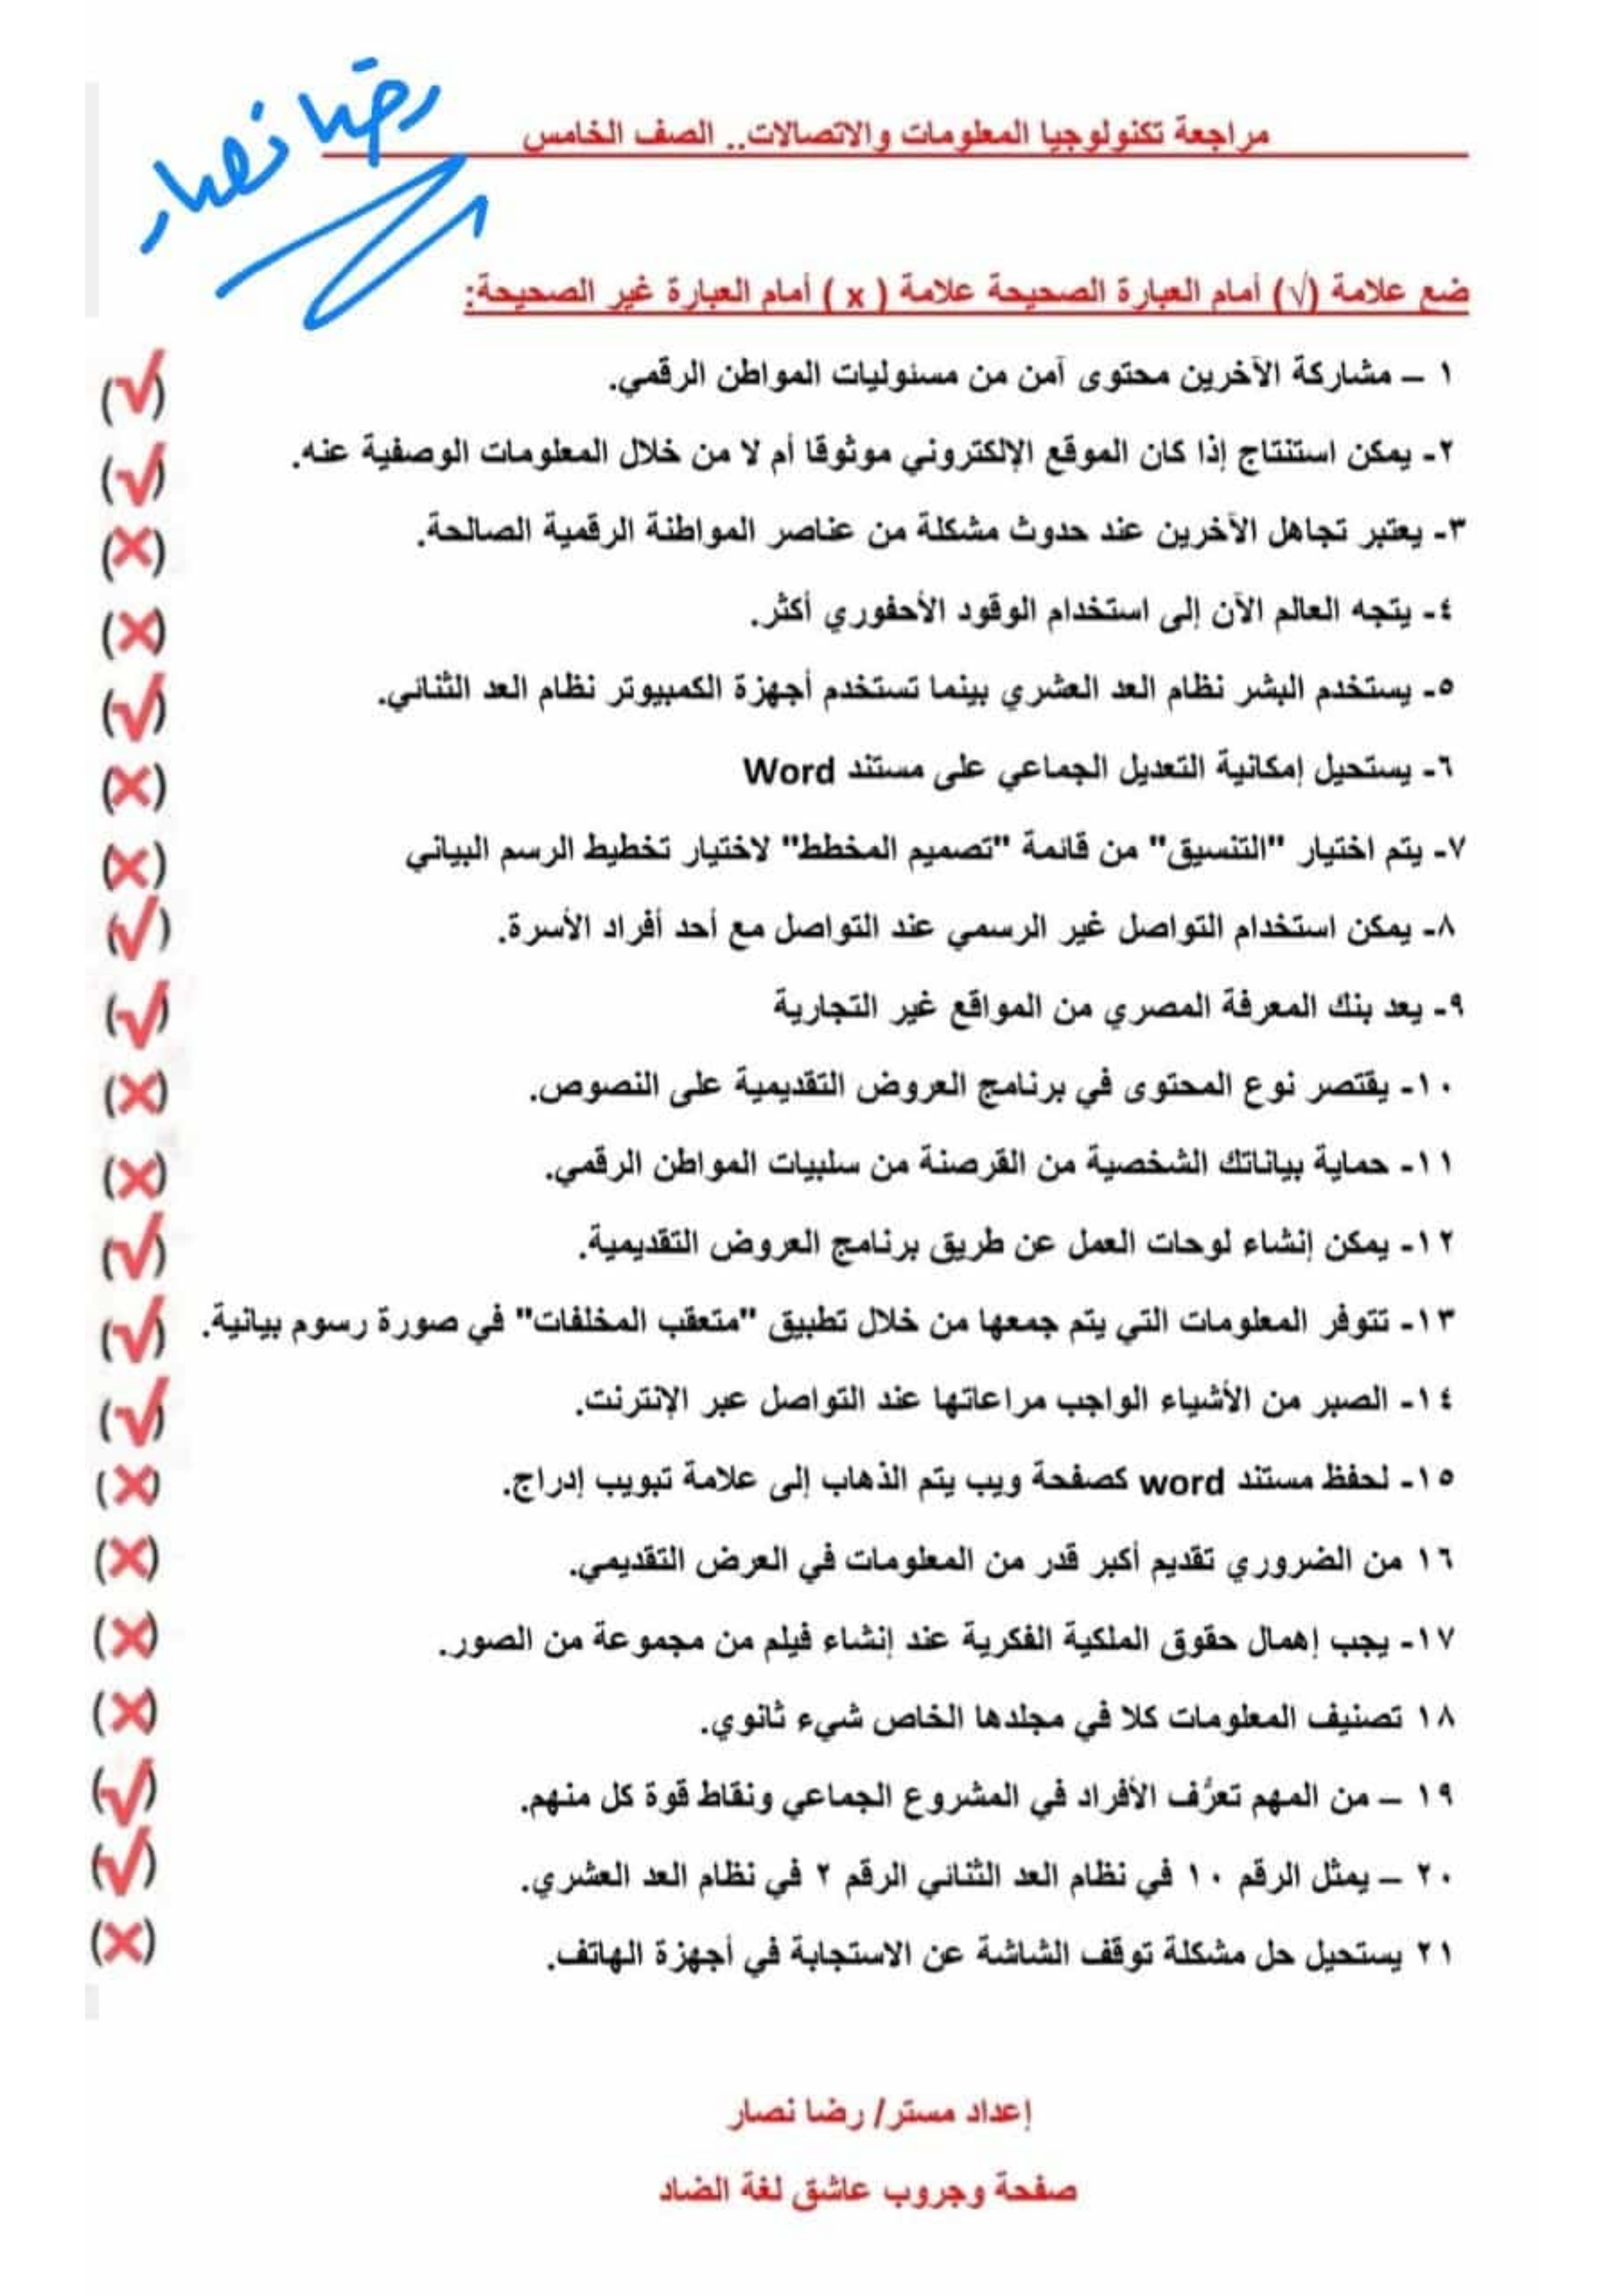 رضا نصار
مراجعة تكنولوجيا المعلومات والاتصالات.. الصف الخامس
ضع علامة (√) أمام العبارة الصحيحة علامة ( x ) أمام العبارة غير الصحيحة:
١ – مشاركة الآخرين محتوى آمن من مسئوليات المواطن الرقمي. (√)
٢- يمكن استنتاج إذا كان الموقع الإلكتروني موثوقا أم لا من خلال المعلومات الوصفية عنه. (√)
٣- يعتبر تجاهل الآخرين عند حدوث مشكلة من عناصر المواطنة الرقمية الصالحة. (×)
٤- يتجه العالم الآن إلى استخدام الوقود الأحفوري أكثر. (×)
٥- يستخدم البشر نظام العد العشري بينما تستخدم أجهزة الكمبيوتر نظام العد الثنائي. (√)
٦- يستحيل إمكانية التعديل الجماعي على مستند Word (×)
٧- يتم اختيار "التنسيق" من قائمة "تصميم المخطط" لاختيار تخطيط الرسم البياني (×)
٨- يمكن استخدام التواصل غير الرسمي عند التواصل مع أحد أفراد الأسرة. (√)
٩- يعد بنك المعرفة المصري من المواقع غير التجارية (√)
١٠- يقتصر نوع المحتوى في برنامج العروض التقديمية على النصوص. (×)
١١- حماية بياناتك الشخصية من القرصنة من سلبيات المواطن الرقمي. (×)
١٢- يمكن إنشاء لوحات العمل عن طريق برنامج العروض التقديمية. (√)
١٣- تتوفر المعلومات التي يتم جمعها من خلال تطبيق "متعقب المخلفات" في صورة رسوم بيانية. (√)
١٤- الصبر من الأشياء الواجب مراعاتها عند التواصل عبر الإنترنت. (√)
١٥- لحفظ مستند word كصفحة ويب يتم الذهاب إلى علامة تبويب إدراج. (×)
١٦ من الضروري تقديم أكبر قدر من المعلومات في العرض التقديمي. (×)
١٧- يجب إهمال حقوق الملكية الفكرية عند إنشاء فيلم من مجموعة من الصور. (×)
١٨ تصنيف المعلومات كلا في مجلدها الخاص شيء ثانوي. (×)
١٩ – من المهم تعرُّف الأفراد في المشروع الجماعي ونقاط قوة كل منهم. (√)
٢٠ – يمثل الرقم ١٠ في نظام العد الثنائي الرقم ٢ في نظام العد العشري. (√)
٢١ يستحيل حل مشكلة توقف الشاشة عن الاستجابة في أجهزة الهاتف. (×)
إعداد مستر/ رضا نصار
صفحة وجروب عاشق لغة الضاد